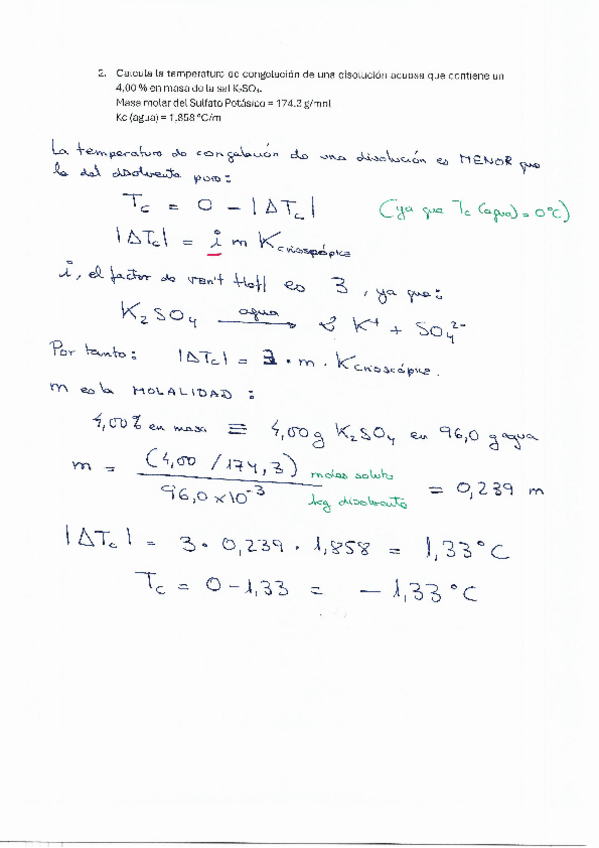 2. Calcula la temperatura de congelación de una disolución acuosa que contiene un
4,00 % en masa de la sal K₂SO₄.
Masa molar del Sulfato Potásico = 174.3 g/mol
Kc (agua) = 1,858 ºC/m
La temperatura de congelación de una disolución es MENOR que
la del disolvente puro:
Tc = 0 - |ΔTc| (ya que Tc (agua) = 0ºC)
|ΔTc| = i m Kcrioscópica
i, el factor de van't Hoff es 3, ya que:
K₂SO₄ agua → 2 K⁺ + SO₄²⁻
Por tanto: |ΔTc| = 3 · m · Kcrioscópica.
m es la MOLALIDAD:
4,00% en masa ≡ 4,00g K₂SO₄ en 96,0 g agua
m = (4,00 / 174,3) moles soluto
96,0 x 10⁻³ kg disolvente = 0,239 m
|ΔTc| = 3 · 0,239 · 1,858 = 1,33ºC
Tc = 0 - 1,33 = - 1,33ºC